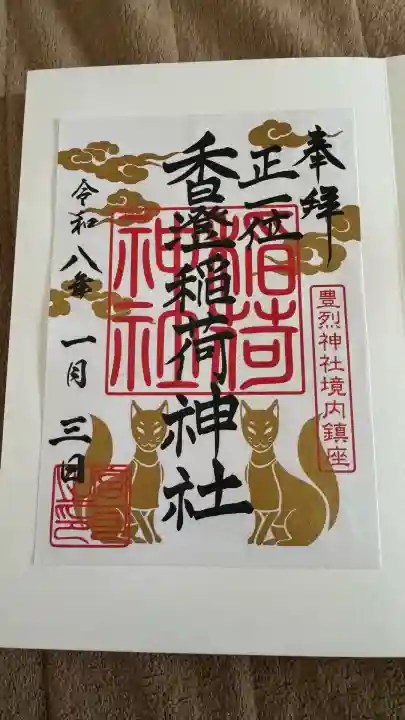 奉拝
正一位
香澄稲荷神社
令和八年 一月 三日
豊烈神社境内鎮座
稲荷
神社